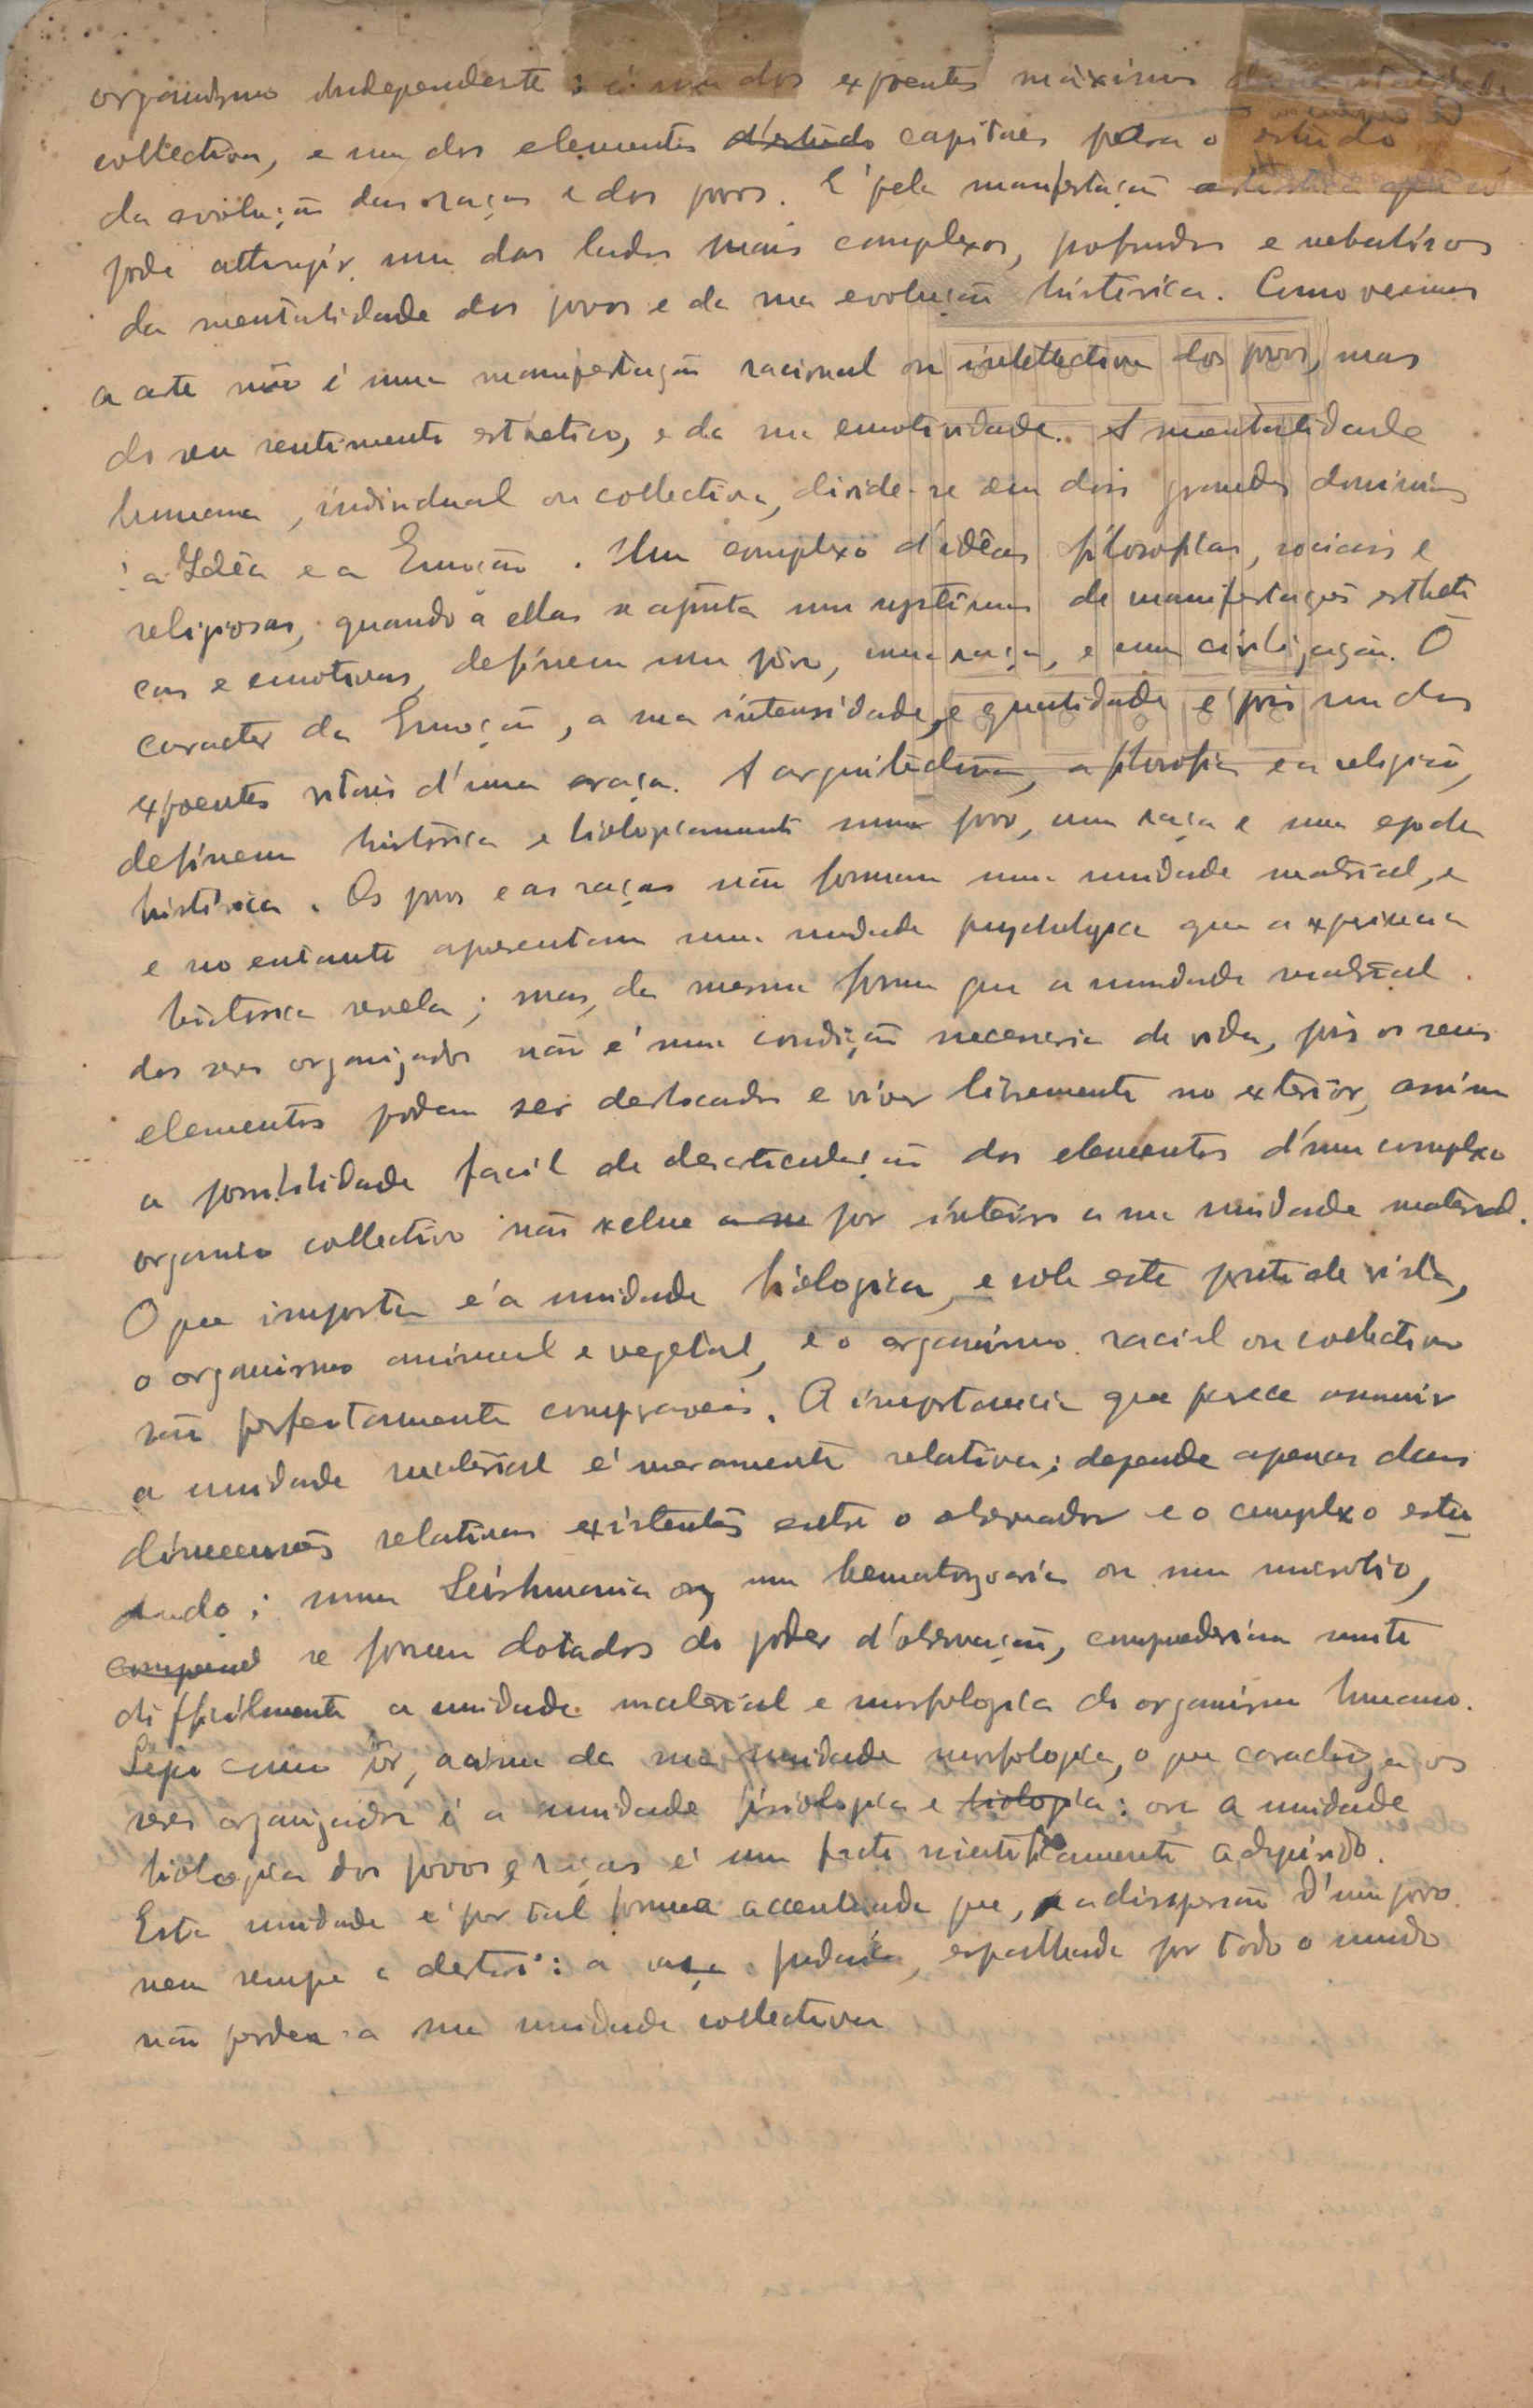 organismo independente: é um dos expoentes máximos da mentalidade
collectiva, e um dos elementos d'estudo capitaes para o estudo
da evolução das raças e dos povos. É pela manifestação artistica que se
pode attingir um dos lados mais complexos, profundos e nebulosos
da mentalidade dos povos e da sua evolução histórica. Como vemos
a arte não é uma manifestação racional ou intellectiva dos povos, mas
do seu sentimento esthetico, e da sua emotividade. A mentalidade
humana, individual ou collectiva, divide-se em dois grandes dominios
: a Idêa e a Emoção. Um complexo d'idêas filosoficas, sociais e
religiosas, quando a ellas se ajunta um systema de manifestações estheti
cas e emotivas, definem um povo, uma raça, e uma civilização. O
caracter da Emoção, a sua intensidade, e qualidade é pois um dos
expoentes vitais d'uma raça. A arquitectura, a filosofia e a religião,
definem historica e biologicamente um povo, uma raça e uma epoca
histórica. Os povos e as raças não formam uma unidade material, e
e no entanto apresentam uma unidade psychologica que a experiencia
historica revela; mas, da mesma forma que a unidade material
dos seres organizados não é uma condição necessaria de vida, pois os seus
elementos podem ser deslocados e viver livremente no exterior, assim
a possibilidade facil de desarticulação dos elementos d'um complexo
organico collectivo não exclue a su por inteiro a sua unidade material.
O que importa é a unidade biologica, e sob este ponto de vista,
o organismo animal e vegetal, e o organismo racial ou collectivo
são perfeitamente comparaveis. A importancia que parece assumir
a unidade material é meramente relativa; depende apenas das
dimensões relativas existentes entre o observador e o complexo estu
dado; uma Leishmania ou um hematozoario ou um microbio,
se fossem dotados do poder d'observação, comprederiam muito
difficilmente a unidade material e morfologica do organismo humano.
Seja como fôr, acima da sua unidade morfologica, o que caracteriza os
seres organizados é a unidade fisiologica e biologica: ora a unidade
biologica dos povos e raças é um facto scientificamente adquirido.
Esta unidade é por tal forma accentuada que, a dispersão d'um povo
nem sempre a destroi: a raça judaica, espalhada por todo o mundo
não perdeu a sua unidade collectiva